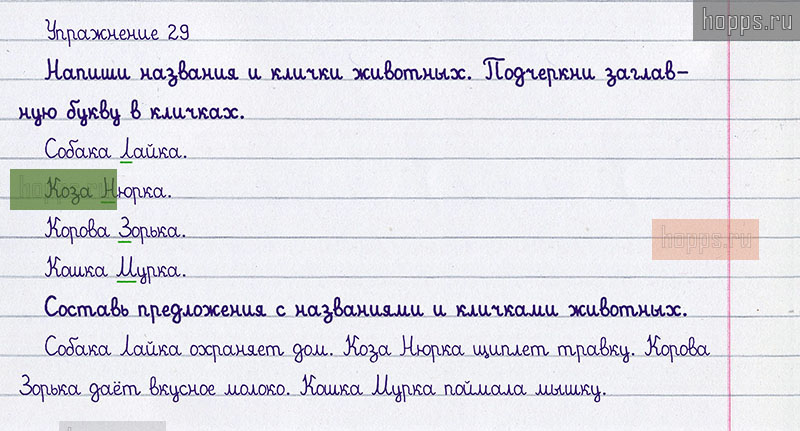 hopps.ru
Упражнение 29
Напиши названия и клички животных. Подчеркни заглав-
ную букву в кличках.
Собака Лайка.
Коза Нюрка.
hopps.ru
Корова Зорька.
hopps.ru
Кошка Мурка.
Составь предложения с названиями и кличками животных.
Собака Лайка охраняет дом. Коза Нюрка щиплет травку. Корова
Зорька даёт вкусное молоко. Кошка Мурка поймала мышку.